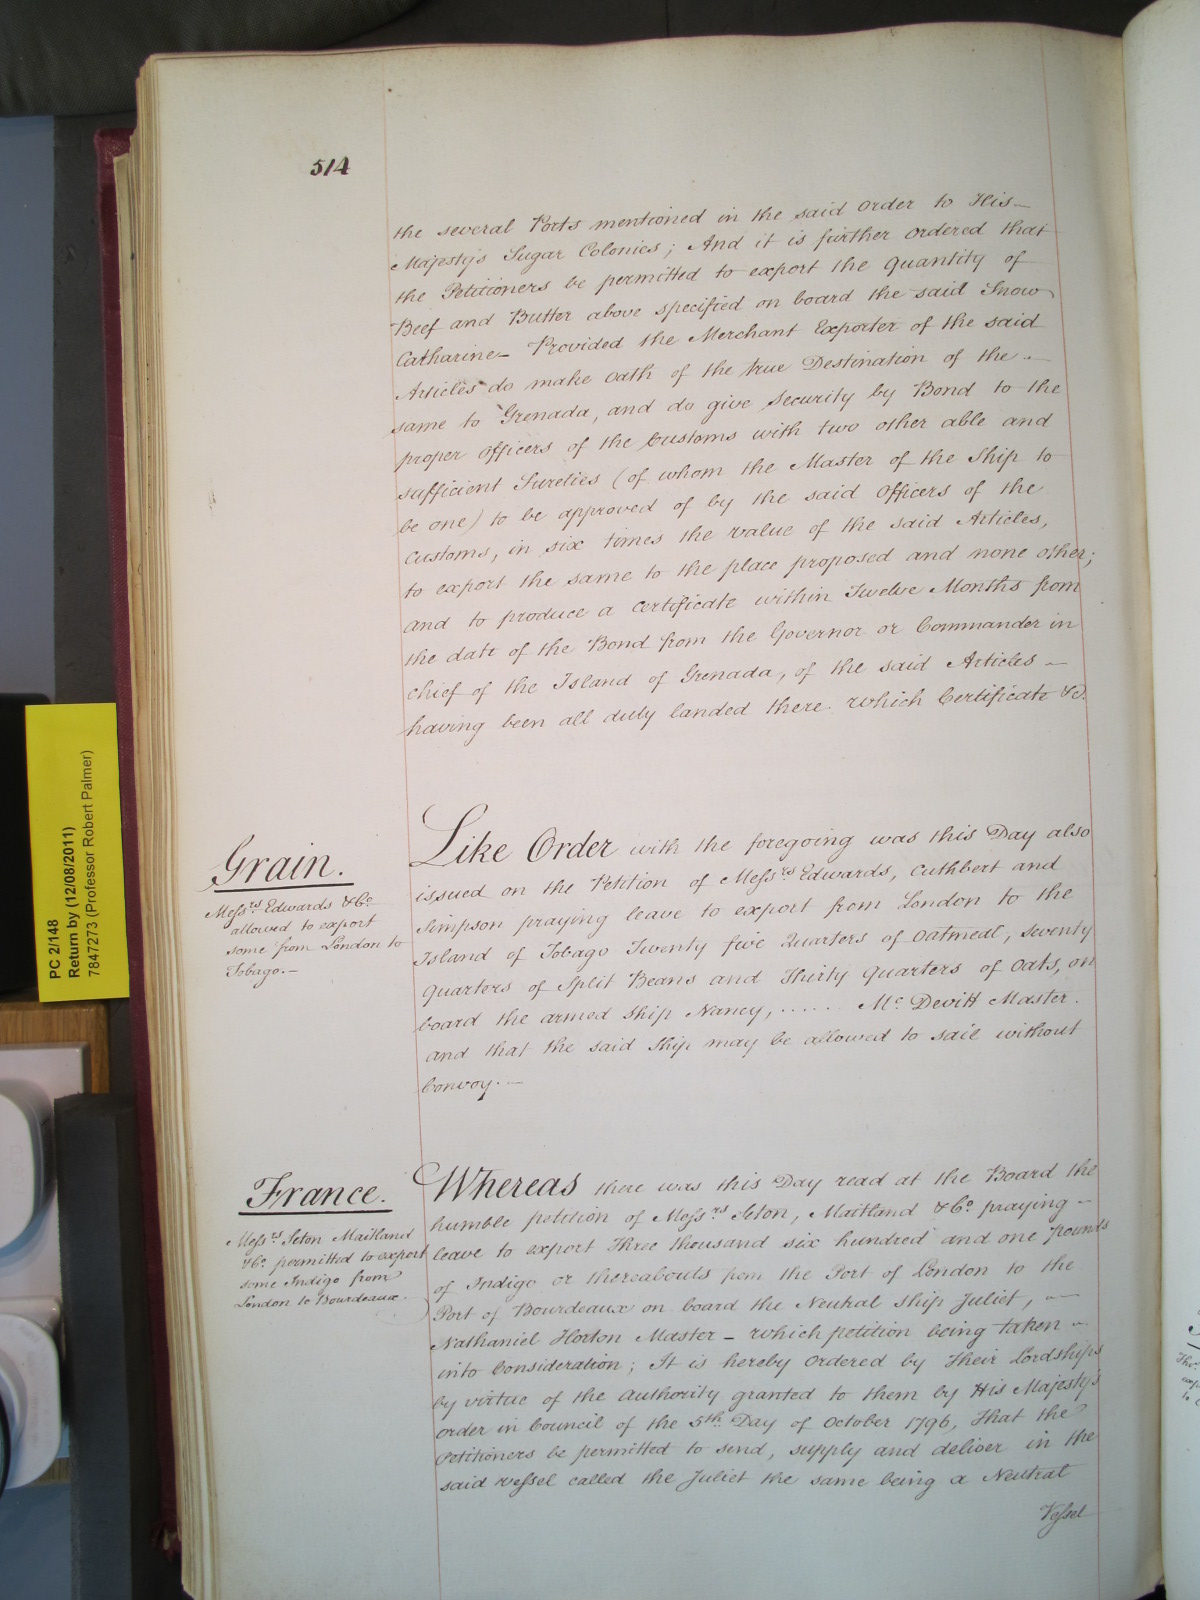 514
the several Ports mentioned in the said Order to His
Majesty's Sugar Colonies; And it is further Ordered that
the Petitioners be permitted to export the Quantity of
Beef and Butter above specified on board the said Snow
Catharine – Provided the Merchant Exporter of the said
Articles do make Oath of the true Destination of the –
same to Grenada, and do give Security by Bond to the
proper Officers of the Customs with two other able and
sufficient Sureties (of whom the Master of the Ship to
be one) to be approved of by the said Officers of the
Customs, in six times the value of the said Articles,
to export the same to the place proposed and none other;
and to produce a Certificate within Twelve Months from
the date of the Bond from the Governor or Commander in
chief of the Island of Grenada, of the said Articles –
having been all duly landed there. which Certificate &c.
Grain.
Messrs Edwards & Co.
allowed to export
some from London to
Tobago. –
Like Order with the foregoing was this Day also
issued on the Petition of Messrs Edwards, Cuthbert and
Simpson praying leave to export from London to the
Island of Tobago Twenty five Quarters of Oatmeal, Seventy
Quarters of Split Beans and Thirty Quarters of Oats, on
board the armed Ship Nancy, ...... Mc Devitt Master.
and that the said Ship may be allowed to sail without
Convoy. –
France.
Messrs Seton Maitland
& Co. permitted to export
some Indigo from
London to Bourdeaux.
Whereas there was this Day read at the Board the
humble petition of Messrs Seton, Maitland & Co. praying –
leave to export Three thousand six hundred and one pounds
of Indigo or thereabouts from the Port of London to the
Port of Bourdeaux on board the Neutral Ship Juliet, –
Nathaniel Horton Master – which petition being taken –
into Consideration; It is hereby Ordered by Their Lordships
by virtue of the Authority granted to them by His Majesty's
Order in Council of the 5th Day of October 1796, That the
Petitioners be permitted to send, supply and deliver in the
said Vessel called the Juliet the same being a Neutral
Vessel
PC 2/148
Return by (12/08/2011)
7847273 (Professor Robert Palmer)